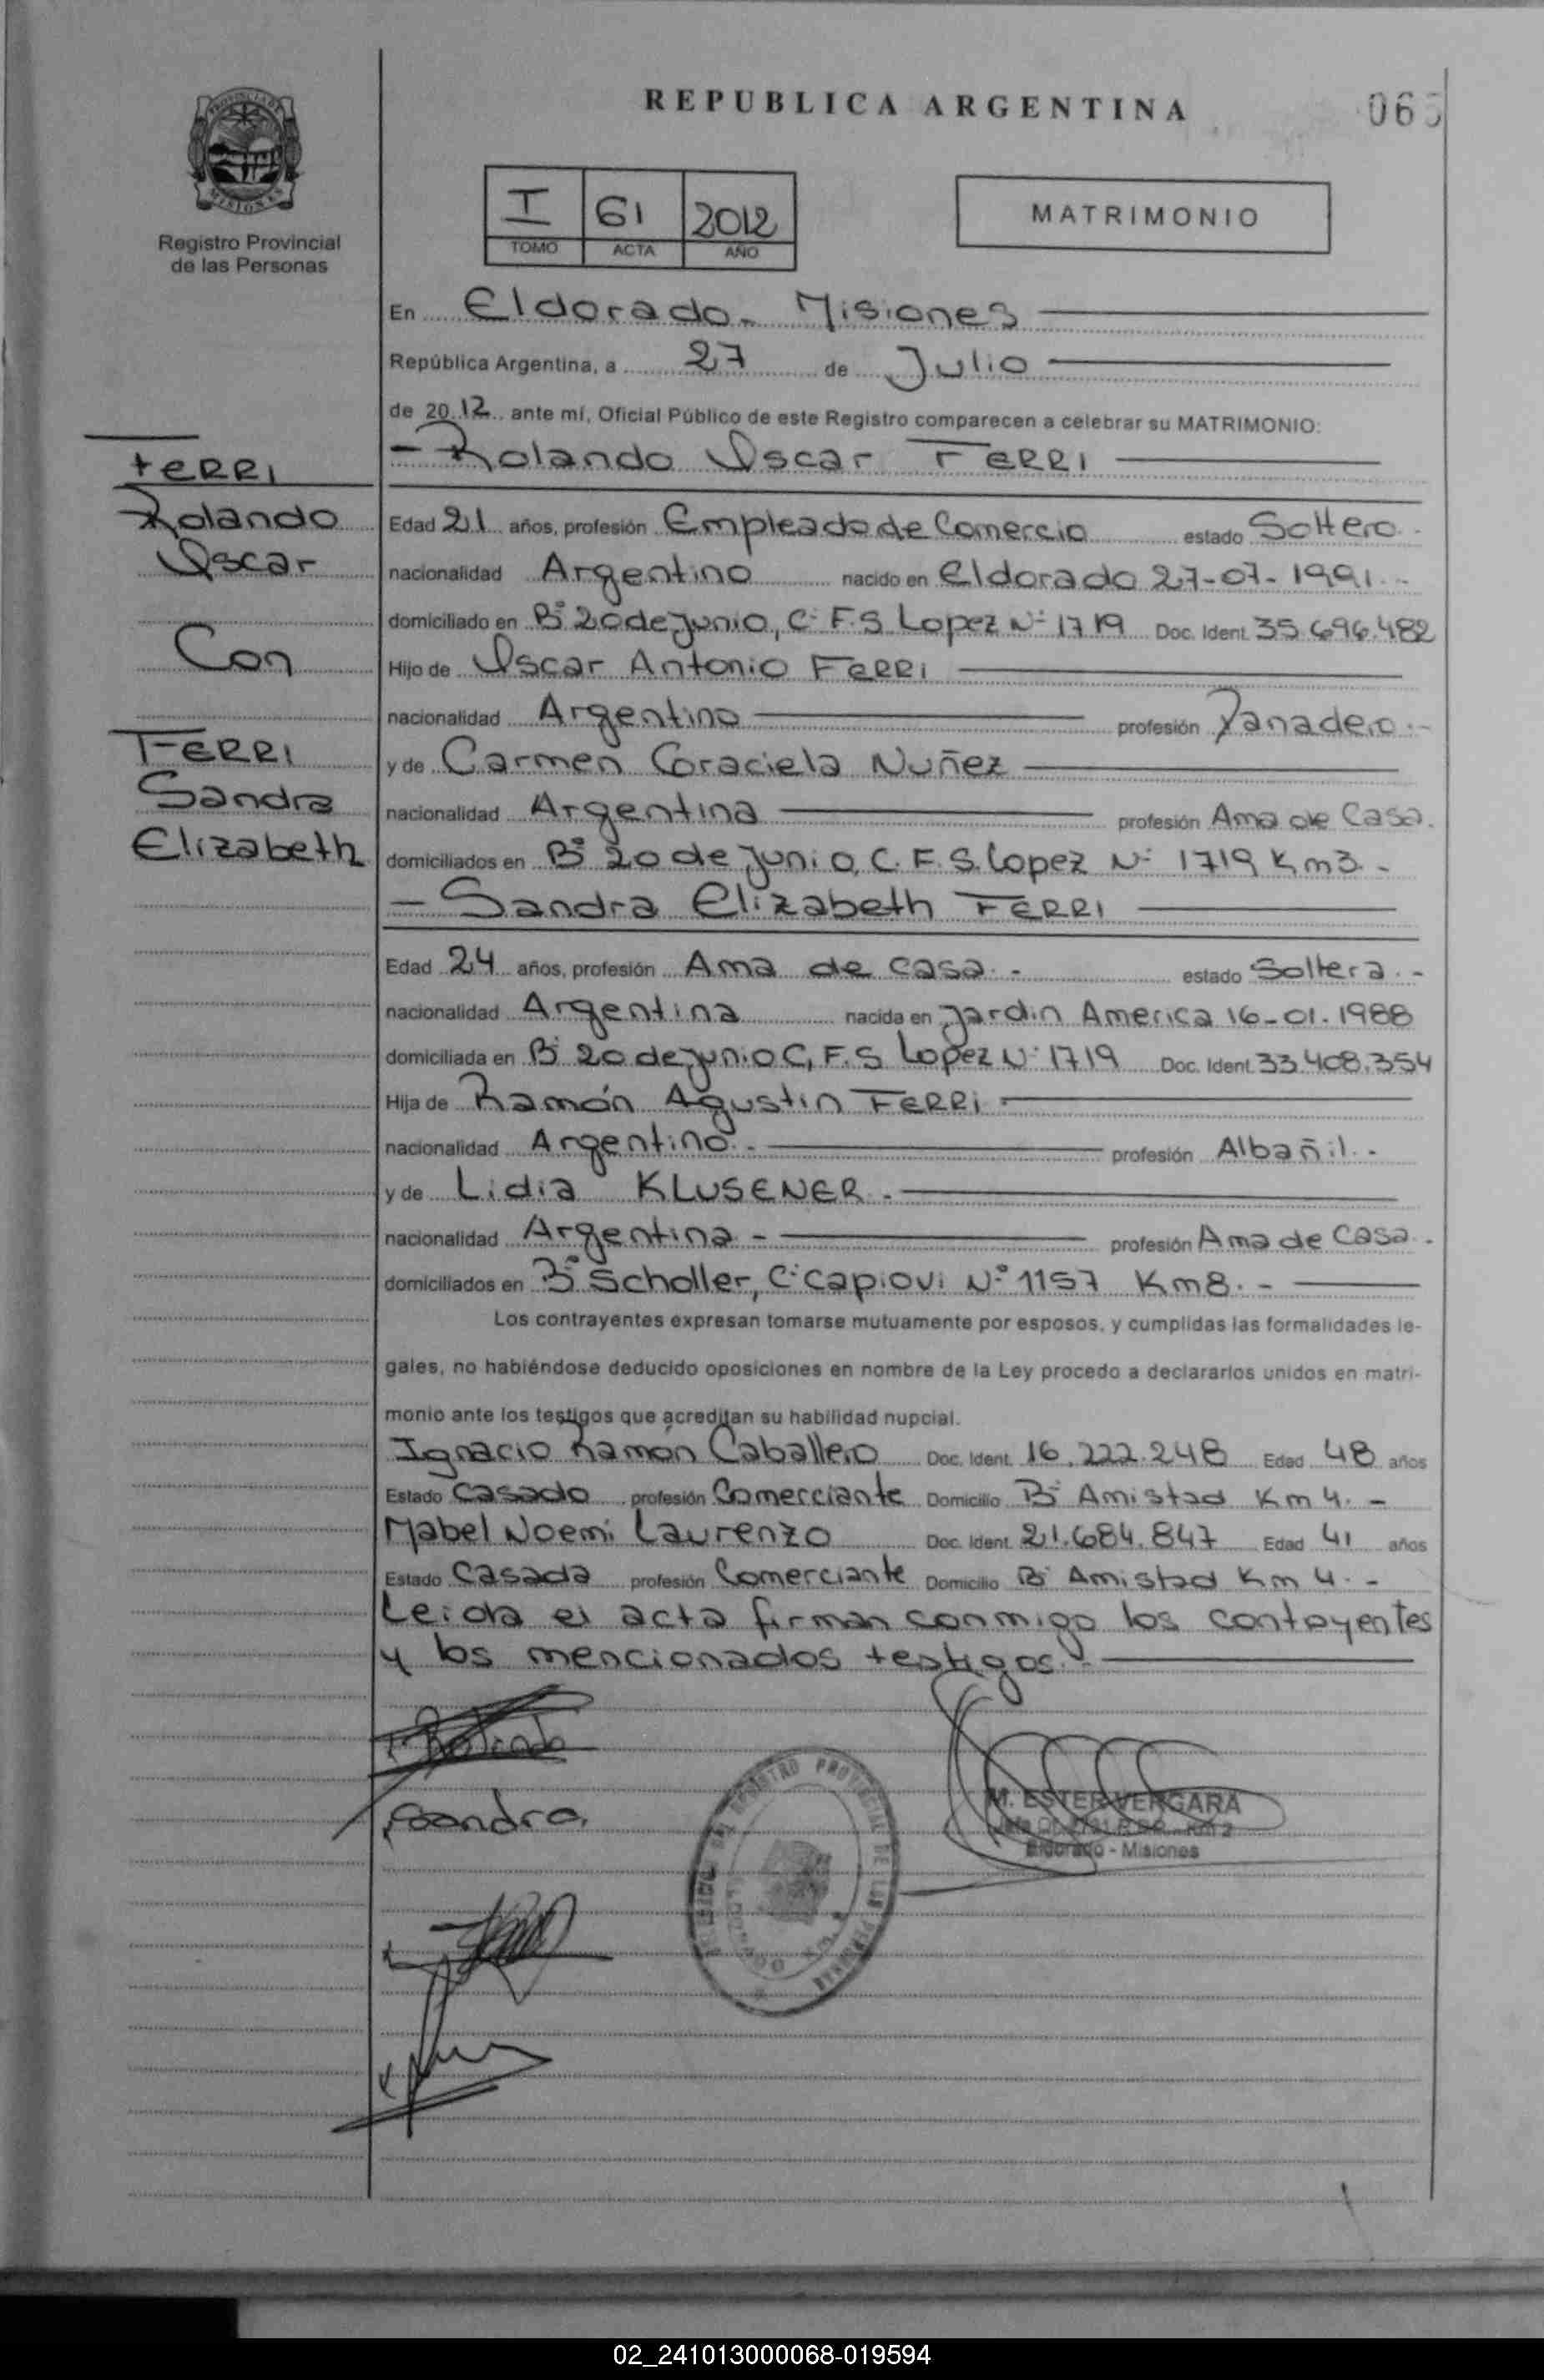 REPUBLICA ARGENTINA
PROVINCIA DE
MISIONES
Registro Provincial
de las Personas
I 61 2012
TOMO ACTA AÑO
MATRIMONIO
En Eldorado - Misiones
República Argentina, a 27 de Julio
de 20 12 ante mí, Oficial Público de este Registro comparecen a celebrar su MATRIMONIO:
- Rolando Oscar FERRI
FERRI
Rolando
Oscar
Con
FERRI
Sandra
Elizabeth
Edad 21 años, profesión Empleado de Comercio estado Soltero.-
nacionalidad Argentino nacido en Eldorado 27-07-1991.-
domiciliado en Bº 20 de Junio, C. F.S. Lopez Nº 1719 Doc. Ident. 35.696.482
Hijo de Oscar Antonio FERRI
nacionalidad Argentino profesión Panadero.-
y de Carmen Graciela Nuñez
nacionalidad Argentina profesión Ama de Casa.
domiciliados en Bº 20 de Junio, C. F. S. Lopez Nº 1719 Km3.-
- Sandra Elizabeth FERRI
Edad 24 años, profesión Ama de casa.- estado Soltera.-
nacionalidad Argentina nacida en Jardin America 16-01-1988
domiciliada en Bº 20 de Junio C, F.S Lopez Nº 1719 Doc. Ident. 33.408.354
Hija de Ramón Agustin FERRI
nacionalidad Argentino.- profesión Albañil.-
y de Lidia KLUSENER.
nacionalidad Argentina - profesión Ama de Casa.
domiciliados en Bº Scholler, C. Capiovi Nº 1157 Km8.-
Los contrayentes expresan tomarse mutuamente por esposos, y cumplidas las formalidades le-
gales, no habiéndose deducido oposiciones en nombre de la Ley procedo a declararlos unidos en matri-
monio ante los testigos que acreditan su habilidad nupcial.
Ignacio Ramón Caballero Doc. Ident. 16.222.248 Edad 48 años
Estado Casado profesión Comerciante Domicilio Bº Amistad Km 4.-
Mabel Noemi Laurenzo Doc. Ident. 21.684.847 Edad 41 años
Estado Casada profesión Comerciante Domicilio Bº Amistad Km 4.-
Leida el acta firman conmigo los contayentes
y los mencionados testigos.-
Rolando
Sandra
M. ESTER VERGARA
Eldorado - Misiones
REGISTRO PROVINCIAL DE LAS PERSONAS
02_241013000068-019594